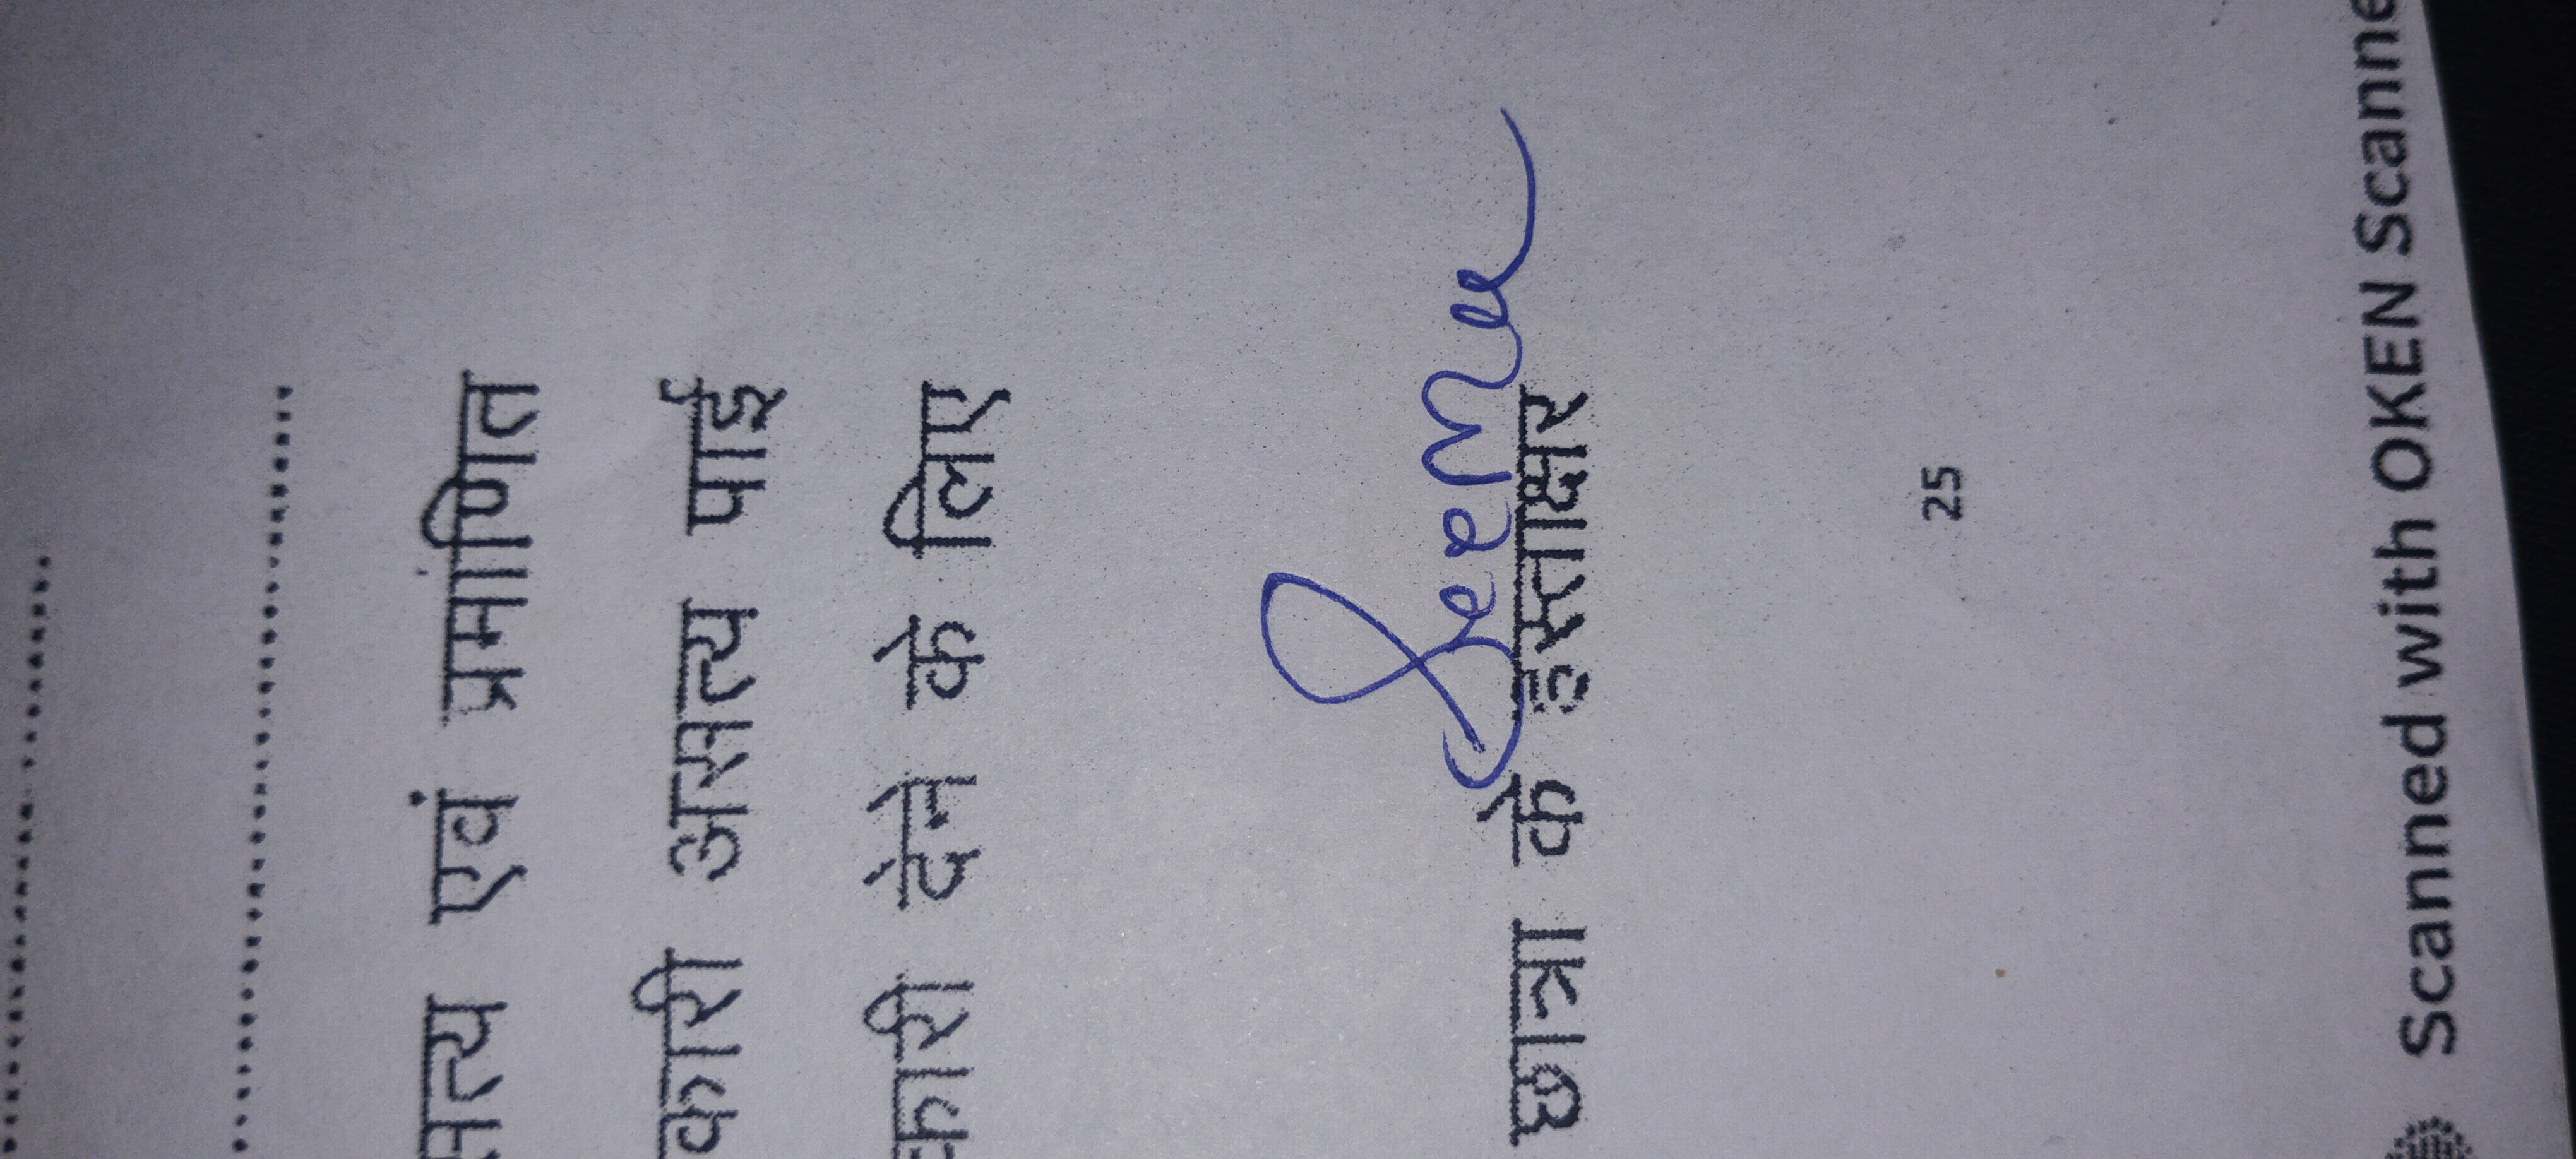 सत्य एवं प्रमाणित
कारी असत्य पाई
कारी देने के लिए
Seema
छात्रा के हस्ताक्षर
25
Scanned with OKEN Scanne